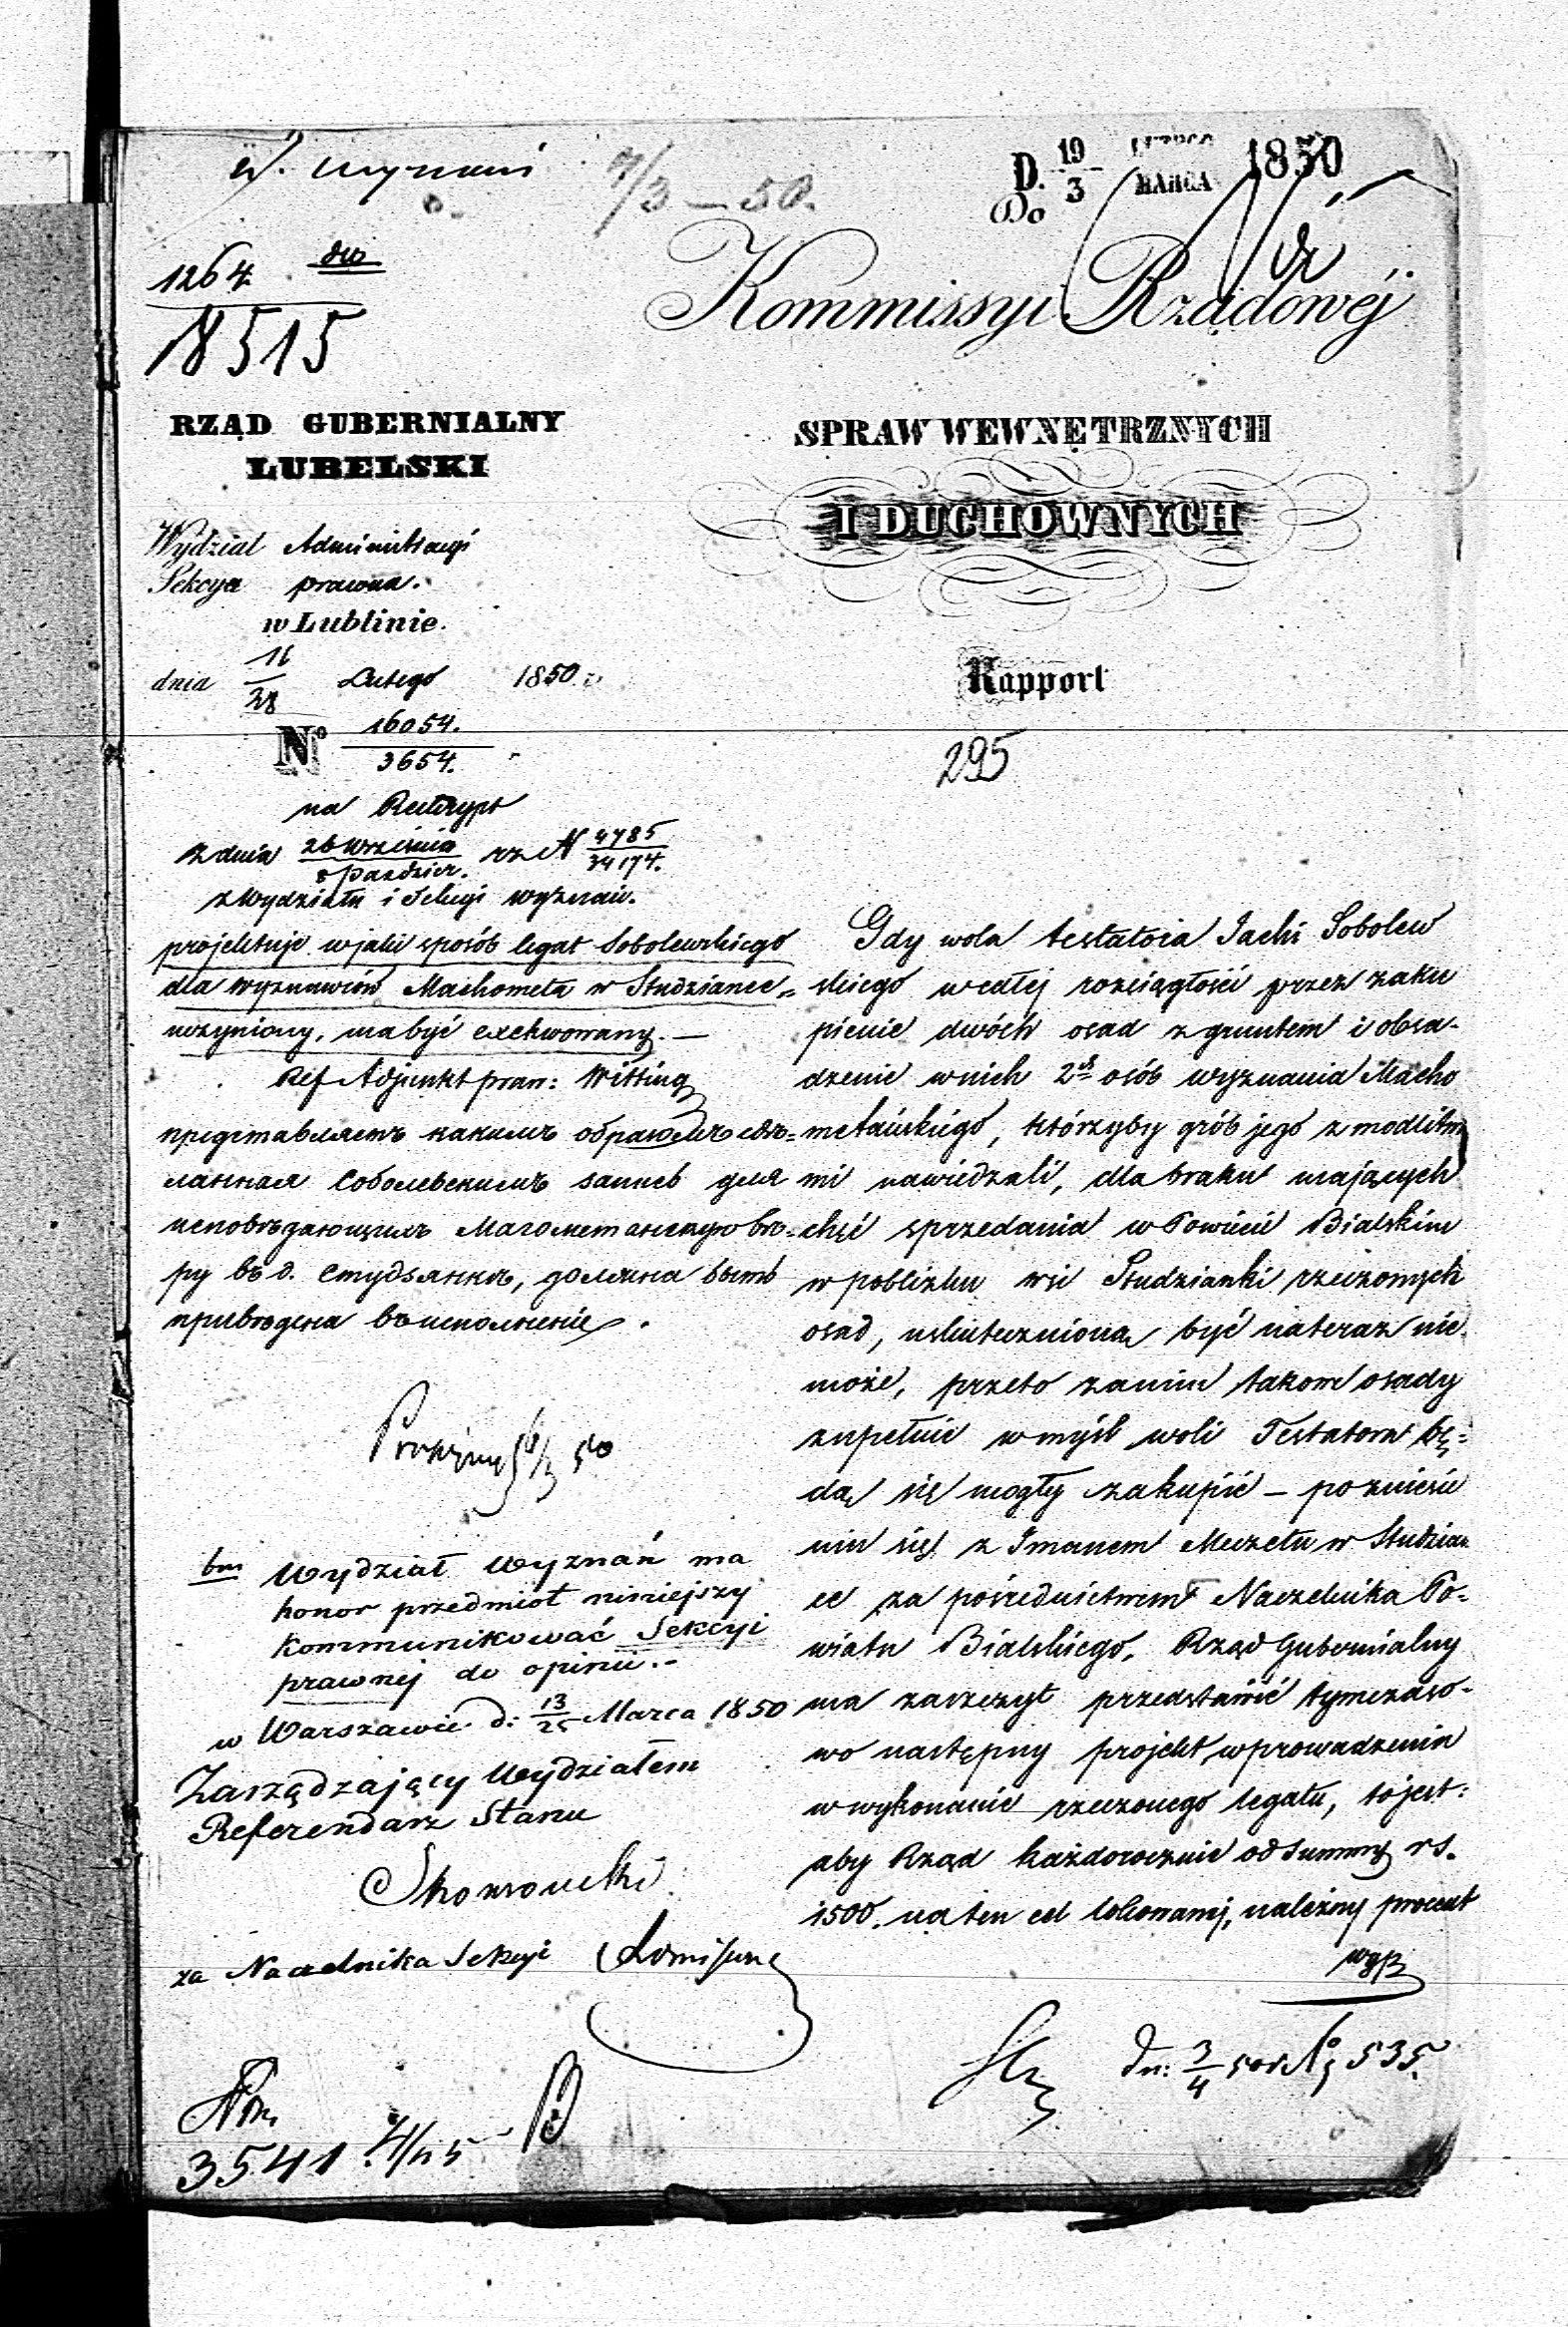 W. Wyznań
7/3 – 50.
D. 19/3 LUTEGO MARCA 1850
Do
1264 dw
18515
Kommissyi Rządowéj
RZĄD GUBERNIALNY
LUBELSKI
SPRAW WEWNĘTRZNYCH
I DUCHOWNYCH
Wydział Administracyi
Sekcya prawna.
w Lublinie.
dnia 16/28 Lutego 1850 r.
Rapport
No 16054./3654.
295
na Reskrypt
z dnia 26 Września/8 Paździer. rz N 4785/34174.
z Wydziału i Sekcyi wyznań.
projektuje w jaki sposób legat Sobolewskiego
dla wyznawców Machometa w Studziance
uczyniony, ma być exekwowany. —
Ref Adjunkt praw: Witting
представляетъ какимъ образомъ сдѣ=
ланная Соболевскимъ запись для
исповѣдающихъ Магометанскую вѣ=
ру въ д. Студзянкѣ, должна быть
приведена въ исполненіе.
bm Wydział Wyznań ma
honor przedmiot niniejszy
kommunikować Sekcyi
prawnej do opinii. –
w Warszawie d: 13/25 Marca 1850
Zarządzający Wydziałem
Referendarz Stanu
za Naczelnika Sekcyi
3541
Gdy wola testatora Jachi Sobolew
skiego w całej rozciągłości przez zaku
pienie dwóch osad z gruntem i obsa-
dzenie w nich 2ch osób wyznania Macho
metańskiego, którzyby grób jego z modlitwa
mi nawiedzali, dla braku mających
chęć sprzedania w Powiecie Bialskim
w pobliżu wsi Studzianki rzeczonych
osad, uskutecznioną być na teraz nie
może, przeto zanim takowe osady
zupełnie w myśl woli Testatora bę=
dą się mogły zakupić – po zniesie
niu się z Imanem Meczetu w Studzian
ce za pośrednictwem Naczelnika Po=
wiatu Bialskiego, Rząd Gubernialny
ma zaszczyt przedstawić tymczaso-
wo następny projekt wprowadzenia
w wykonanie rzeczonego legatu, to jest:
aby Rząd każdorocznie od summy rs.
1500. na ten cel lokowanej, należny procent
wyp
dn: 3/4 50 r No 535.